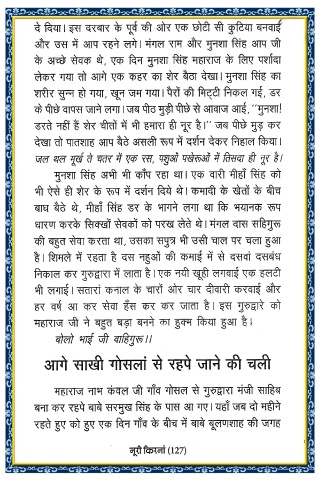 दे दिया। इस दरबार के पूर्व की ओर एक छोटी सी कुटिया बनवाई
और उस में आप रहने लगे। मंगल राम और मुनशा सिंह आप जी
के अच्छे सेवक थे, एक दिन मुनशा सिंह महाराज के लिए पर्शादा
लेकर गया तो आगे एक कहर का शेर बैठा देखा। मुनशा सिंह का
शरीर सुन्न हो गया, खून जम गया। पैरों की मिट्टी निकल गई, डर
के पीछे वापस जाने लगा। जब पीठ मुड़ी पीछे से आबाज आई, ''मुनशा!
डरते नहीं हैं शेर चीतों में भी हमारा ही नूर है।'' जब पीछे मुड़ कर
देखा तो पातशाह आप बैठे असली रूप में दर्शन देकर निहाल किया।
जल थल मूर्ख ते चतर में एक रस, पशुओं पखेरूओं में तिसवा ही नूर है।
मुनशा सिंह अभी भी काँप रहा था। एक वारी मीहाँ सिंह को
भी ऐसे ही शेर के रूप में दर्शन दिये थे। कमादी के खेतों के बीच
बाघ बैठे थे, मीहाँ सिंह डर के भागने लगा था कि भयानक रूप
धारण करके सिक्खों सेवकों को परख लेते थे। मंगल दास सहिगुरू
की बहुत सेवा करता था, उसका सपुत्र भी उसी चाल पर चला हुआ
है। शिमले में रहता है दस नहुओं की कमाई में से दसवां दसबंध
निकाल कर गुरुद्वारा में लाता है। एक नयी खूही लगवाई एक हलटी
भी लगाई। सतारां कनाल के चारों ओर चार दीवारी करवाई और
हर वर्ष आ कर सेवा हँस कर कर जाता है। इस गुरुद्वारे को
महाराज जी ने बहुत बड़ा बनने का हुक्म किया हुआ है।
बोलो भाई जी वाहिगुरू।।
आगे साखी गोसलां से रहपे जाने की चली
महाराज नाभ कंवल जी गाँव गोसल से गुरुद्वारा मंजी साहिब
बना कर रहपे बाबे सरमुख सिंह के पास आ गए। यहाँ जब दो महीने
रहते हुए को हुए एक दिन गाँव के बीच में बाबे बूलणशाह की जगह
नूरी किरनां (127)